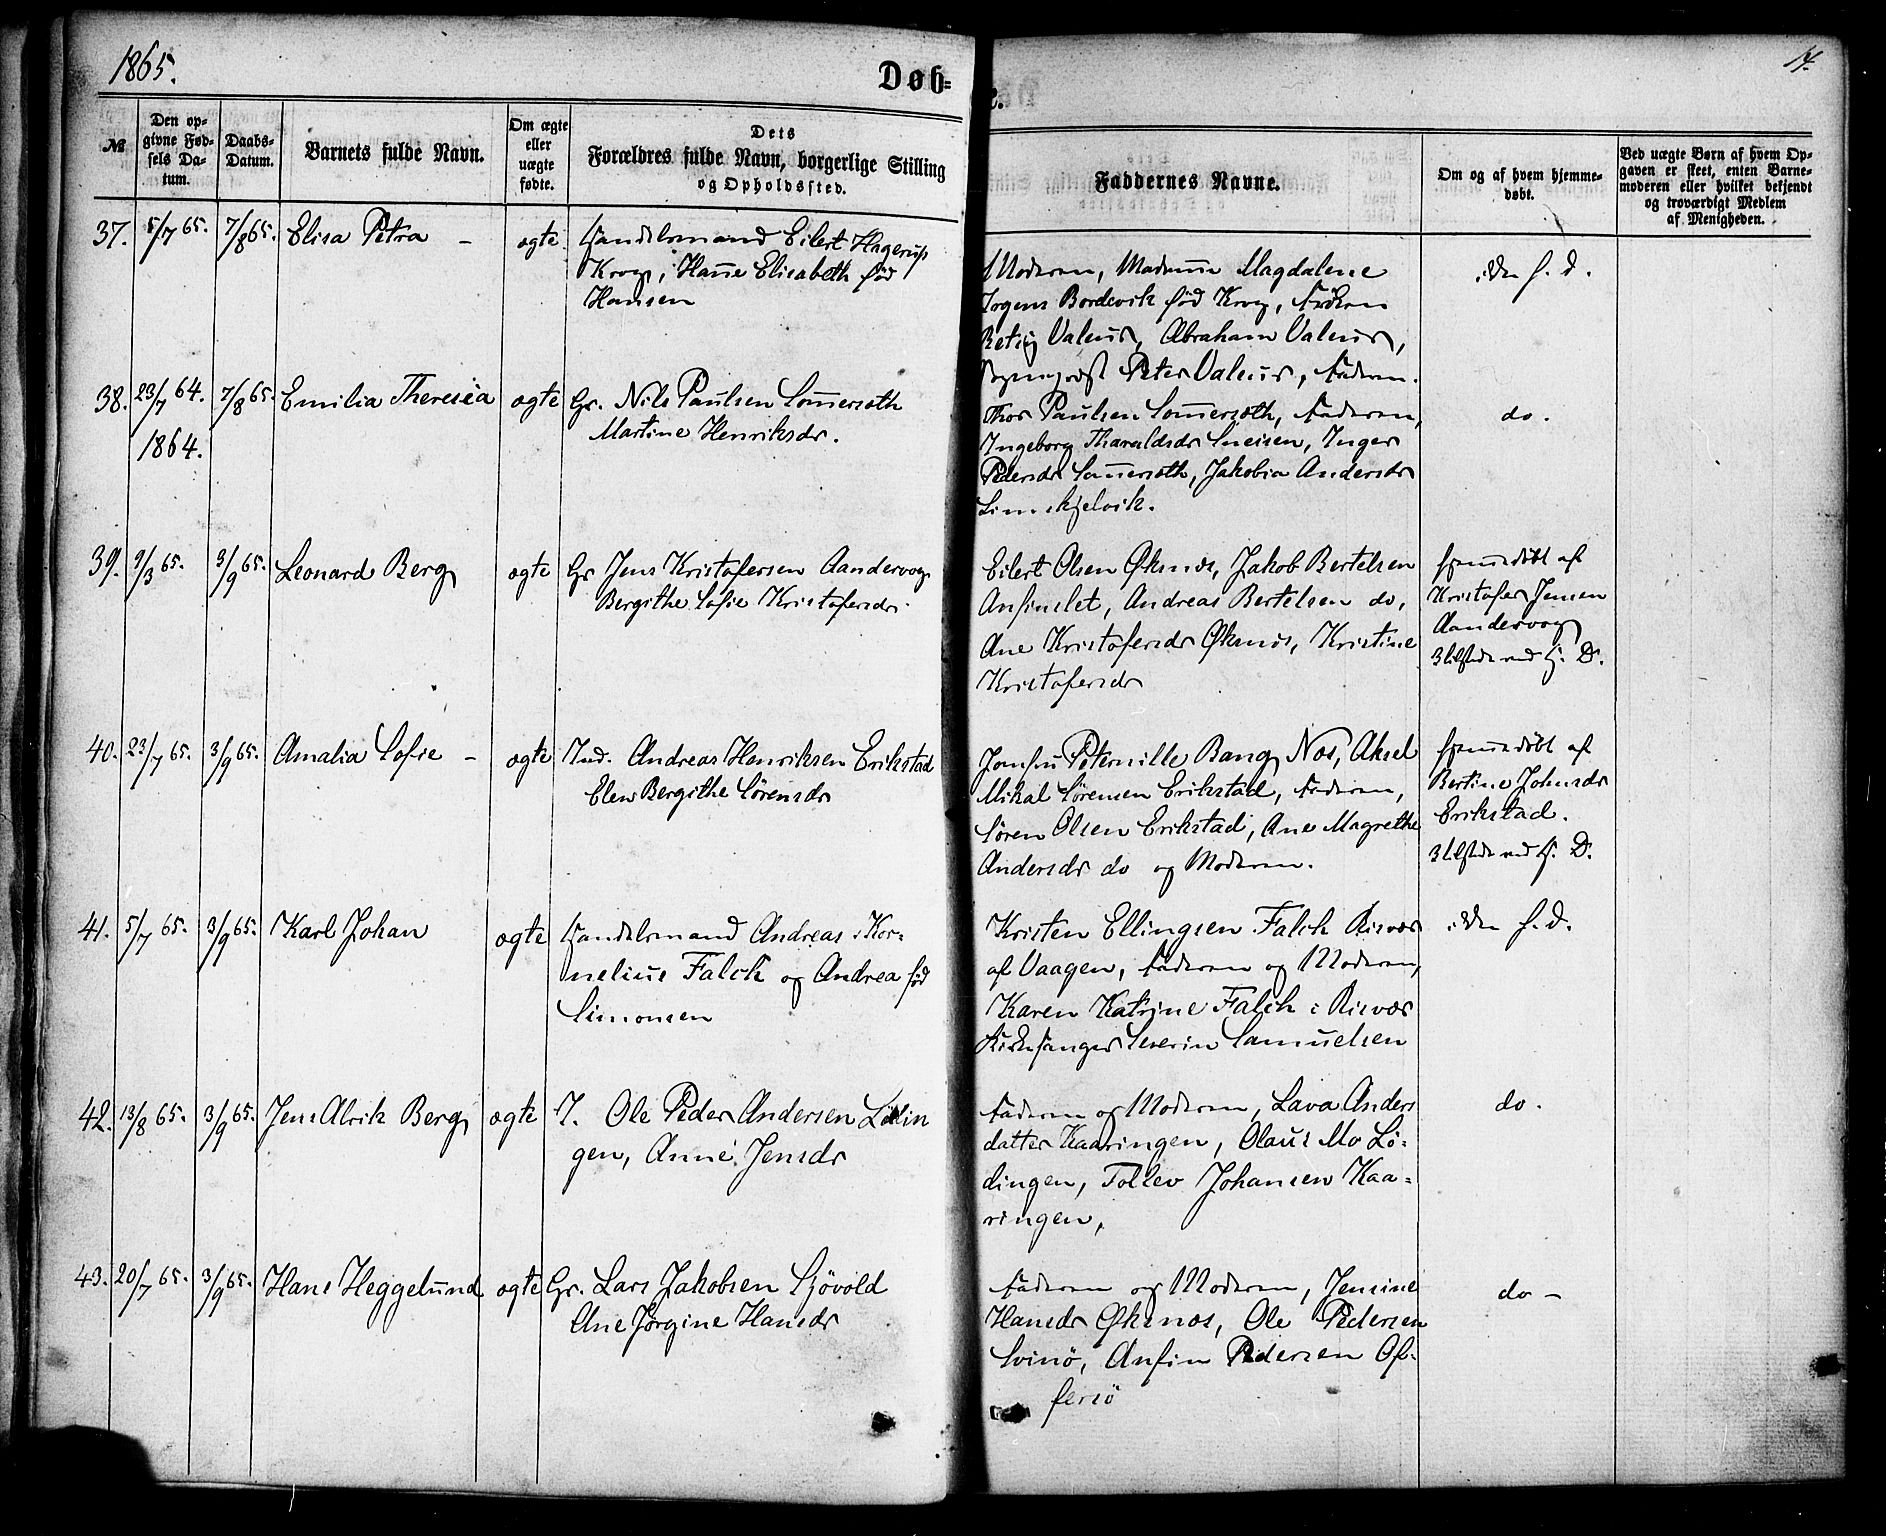 1865.
Døb-
14.
№
Den op-
givne Fød-
sels Da-
tum.
Daabs-
Datum.
Barnets fulde Navn.
Om ægte
eller
uægte
fødte.
Dets
Forældres fulde Navn, borgerlige Stilling
og Opholdssted.
Faddernes Navne.
Om og af hvem hjemme-
døbt.
Ved uægte Børn af hvem Op-
gaven er skeet, enten Barne-
moderen eller hvilket bekjendt
og troværdigt Medlem
af Menigheden.
37. 5/7 65. 7/8 65. Elisa Petra - ægte Handelsmand Eilert Hagerup
Krog, Hanne Elisabeth fød
Hansen
Moderen, Madamme Magdalene
Bordevik fød Krog, Frøken
Valeur, Abraham Valeur,
Peter Valeur, Faderen.
ikke h. d.
38. 23/7 64. 7/8 65. Emilia Theresia ægte Gr. Nils Paulsen Sommersæth
1864. Martine Henriksdr.
Thor Paulsen Sommersæth, Faderen,
Ingeborg Tharaldsdr Sneisen, Inger
Pedersdr Sommersæth, Jakobia Andersdr
Simskjelvik.
do.
39. 9/3 65. 3/9 65. Leonard Berg ægte Gr Jens Kristofersen Aandervog
Bergithe Sofie Kristofersdr.
Eilert Olsen Øksnes, Jakob Bertelsen
Anfinslet, Andreas Bertelsen do,
Ane Kristofersdr Øksnes, Kristine
Kristofersdr
hjemmedøbt af
Kristofer Jensen
Aandervog
3 tilstede ved Hj. D.
40. 23/7 65. 3/9 65. Amalia Sofie - ægte Ind. Andreas Henriksen Erikstad
Elen Bergithe Sørensdr
Jomfru Peternille Bang Næs, Aksel
Mikal Sørensen Erikstad, Faderen,
Søren Olsen Erikstad, Ane Magrethe
Andersdr do og Moderen.
hjemmedøbt af
Bertine Johnsdr
Erikstad.
3 tilstede ved Hj. D.
41. 5/7 65. 3/9 65. Karl Johan ægte Handelsmand Andreas Kor-
nelius Falck og Andrea fød
Simonsen
Kristen Ellingsen Falch Risvær
af Vaagen, Faderen og Moderen,
Karen Katrine Falch i Risvær
Kirkesanger Severin Samuelsen
ikke h. d.
42. 13/8 65. 3/9 65. Jens Alrik Berg ægte I. Ole Peder Andersen Lødin
gen, Anne Jensdr
Faderen og Moderen, Lava Anders
datter Kaaringen, Olaus Mo Lø-
dingen, Tollev Johansen Kaa-
ringen,
do.
43. 20/7 65. 3/9 65. Hans Heggelund ægte Gr. Lars Jakobsen Sjøvold
Ane Jørgine Hansdr
Faderen og Moderen, Jensine
Hansdr Øksnes, Ole Pedersen
Svinø, Anfin Pedersen Of-
fersø
do -